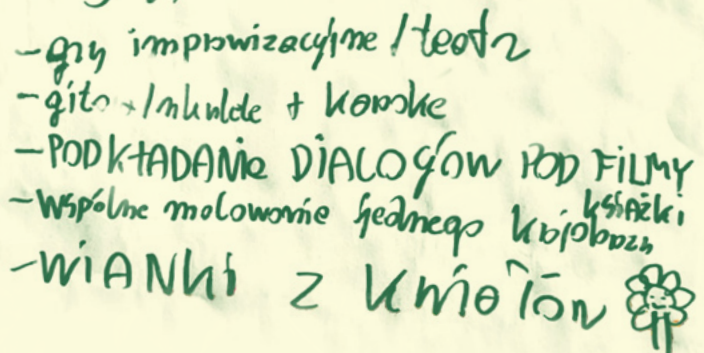 - gry improwizacyjne / teatr
- gita + / ukulele + karaoke
- PODKŁADANie DIALOGÓW POD FiLMY
książki
- wspólne malowanie jednego krajobrazu
- WiANKI z kwiatów